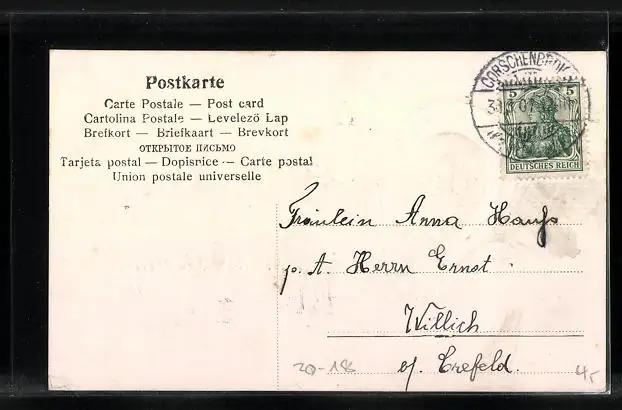 Postkarte
Carte Postale — Post card
Cartolina Postale — Levelező Lap
Brefkort — Briefkaart — Brevkort
ОТКРЫТОЕ ПИСЬМО
Tarjeta postal — Dopisnice — Carte postal
Union postale universelle
CORSCHENBROICH
5 5
DEUTSCHES REICH
Fräulein Anna
p. A. Herrn Ernst.
Willich
b/. Crefeld.
20-18
4,-